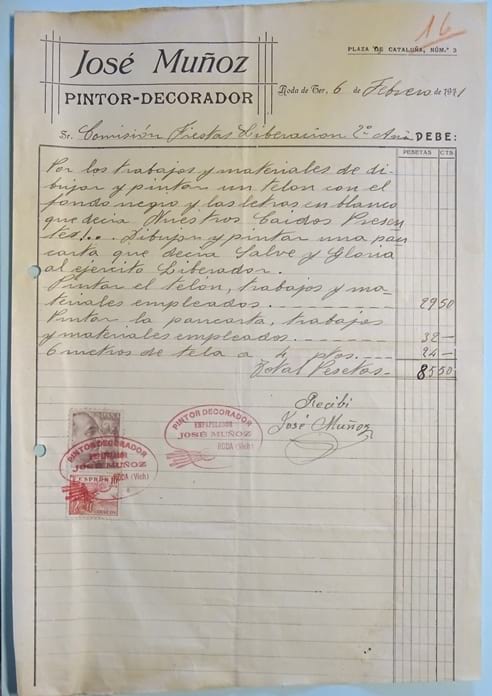 16
José Muñoz
PINTOR-DECORADOR
PLAZA DE CATALUÑA, NÚM.º 3
Roda de Ter, 6 de Febrero de 1941
Sr. Comisión Fiestas Liberacion 2º Ani DEBE:
PESETAS CTS.
Por los trabajos y materiales de di-
bujar y pintar un telon con el
fondo negro y las letras en blanco
que decia Nuestros Caidos Presen
tes!.. Dibujar y pintar una pan
carta que decia Salve y Gloria
al ejército Liberador.
Pintar el telón, trabajos y ma-
teriales empleados. 29 50
Pintar la pancarta, trabajos
y materiales empleados. 32 —
6 metros de tela a 4 ptas. 24 —
Total Pesetas 85 50
Recibi
José Muñoz
PINTOR DECORADOR
EMPAPELADOR
JOSÉ MUÑOZ
RODA (Vich)
PINTOR DECORADOR
JOSÉ MUÑOZ
RODA (Vich)